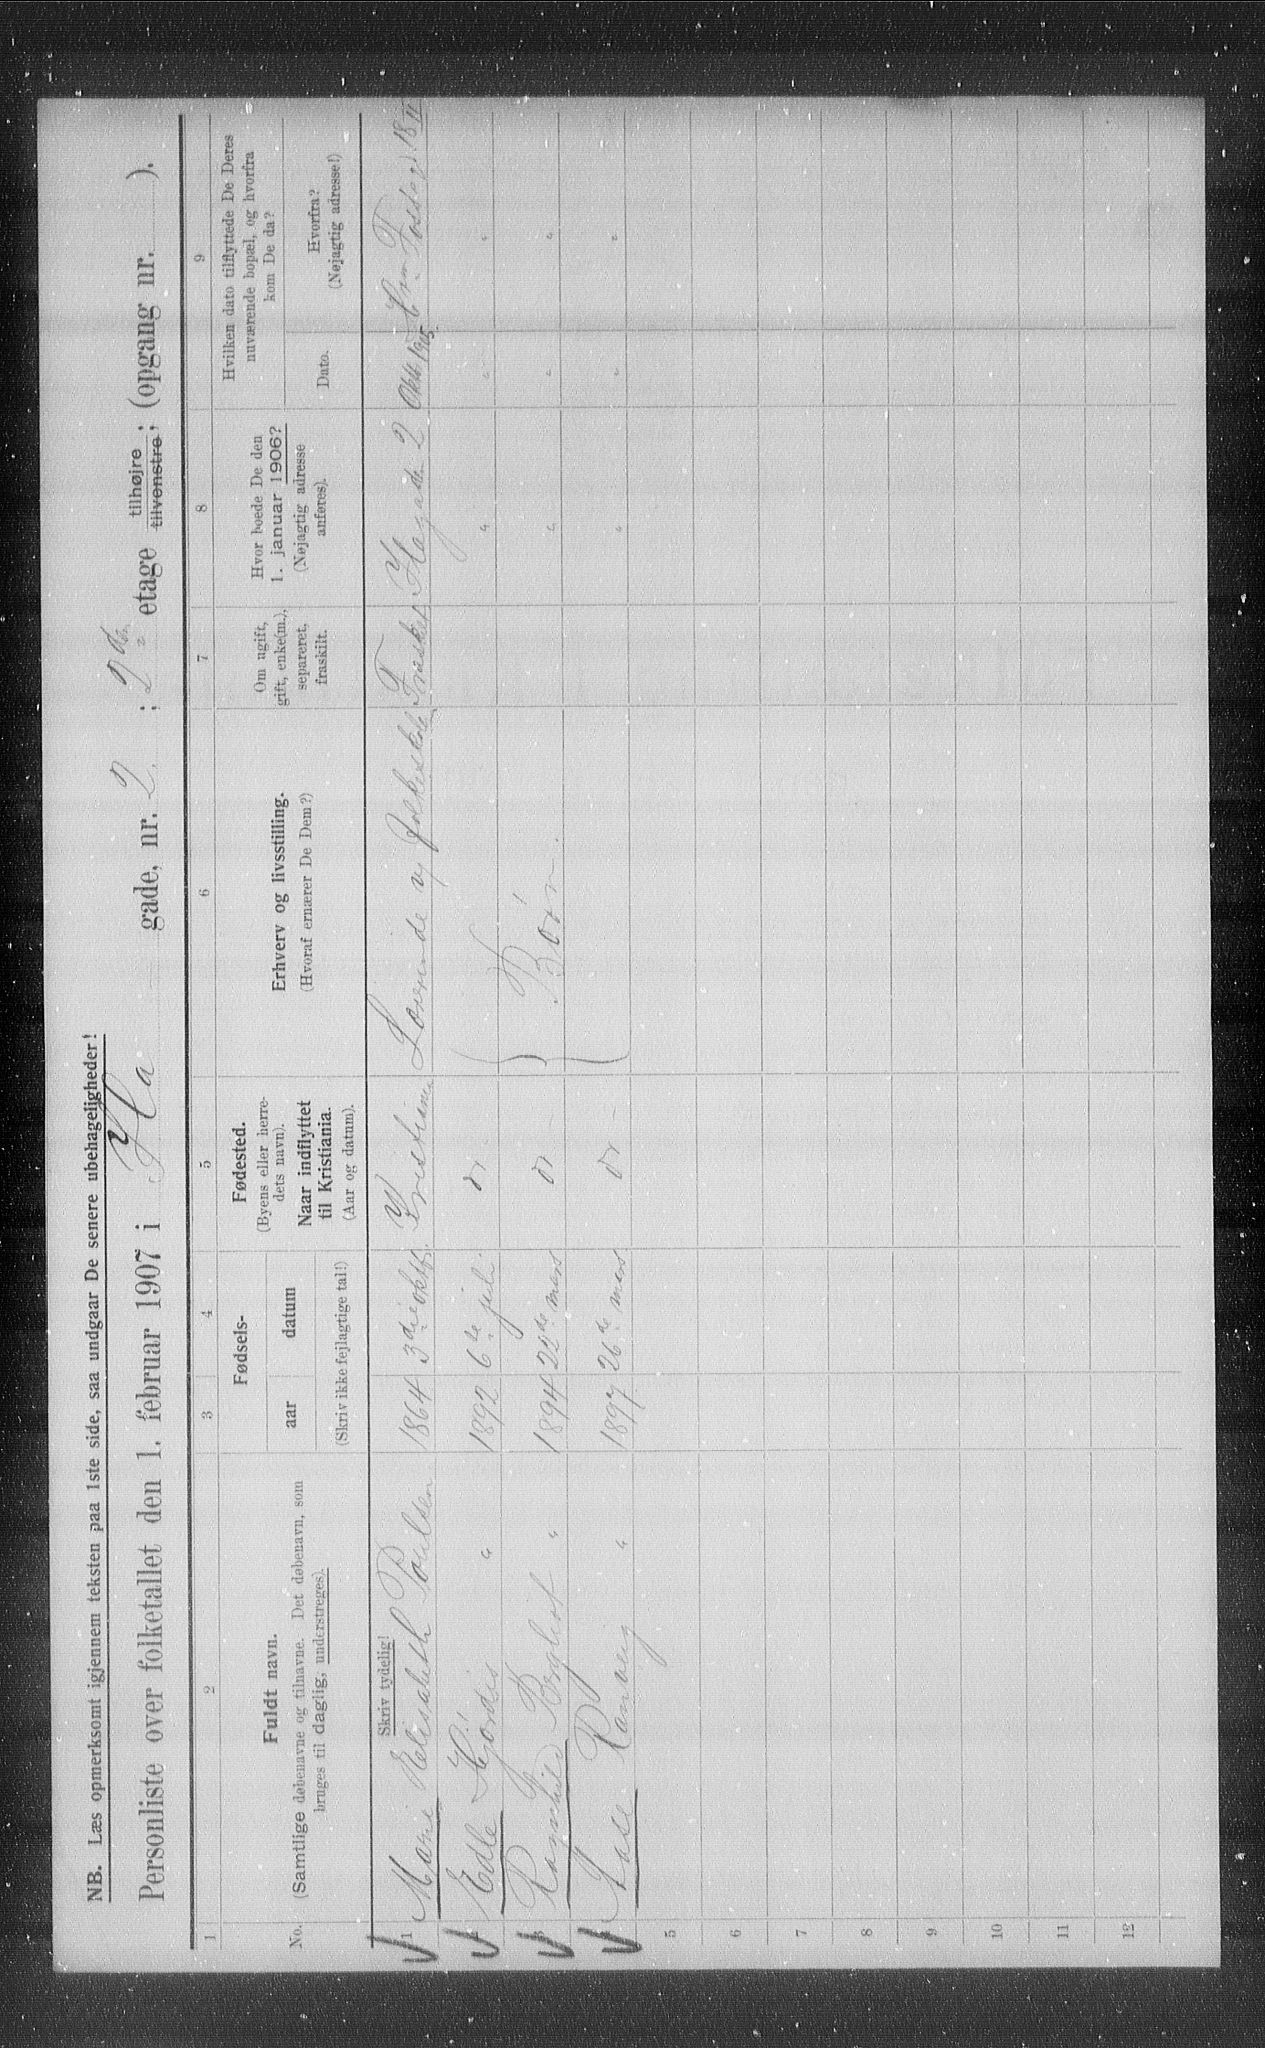 NB. Læs opmerksomt igjennem teksten paa 1ste side, saa undgaar De senere ubehageligheder!
Personliste over folketallet den 1. februar 1907 i Ila gade, nr. 2. ; 2den etage tilhøjre tilvenstre; (opgang nr. ).
1 2 3 4 5 6 7 8 9
No.
Fuldt navn.
(Samtlige døbenavne og tilnavne. Det døbenavn, som
bruges til daglig, understreges).
Fødsels-
aar datum
(Skriv ikke fejlagtige tal!)
Fødested.
(Byens eller herre-
dets navn).
Naar indflyttet
til Kristiania.
(Aar og datum).
Erhverv og livsstilling.
(Hvoraf ernærer De Dem?)
Om ugift,
gift, enke(m.),
separeret,
fraskilt.
Hvor boede De den
1. januar 1906?
(Nøjagtig adresse
anføres).
Hvilken dato tilflyttede De Deres
nuværende bopæl, og hvorfra
kom De da?
Dato.
Hvorfra?
(Nøjagtig adresse!)
Skriv tydelig!
1 Marie Elisabeth Poulsen 1864 3die oktbr. Kristiania Lærerinde v/ folkeskole Fraskil Ilagade 2 Oktb 1905 Chr. 18
2 Edle Hjördis " 1892 6te juli do " " "
3 Ragnhild Bergliot " 1894 22de mars do Börn. " " "
4 Aase Ranveig " 1897 26de mars do " " "
5
6
7
8
9
10
11
12